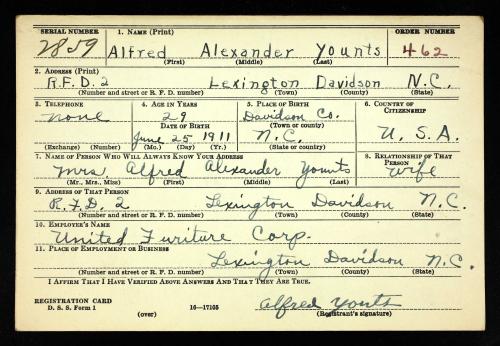 SERIAL NUMBER 1. NAME (Print) ORDER NUMBER
2859 Alfred Alexander Younts 462
(First) (Middle) (Last)
2. ADDRESS (Print)
R.F.D. 2 Lexington Davidson N.C.
(Number and street or R. F. D. number) (Town) (County) (State)
3. TELEPHONE 4. AGE IN YEARS 5. PLACE OF BIRTH 6. COUNTRY OF CITIZENSHIP
none 29 Davidson Co.
DATE OF BIRTH (Town or county)
June 25 1911 N.C. U.S.A.
(Exchange) (Number) (Mo.) (Day) (Yr.) (State or country)
7. NAME OF PERSON WHO WILL ALWAYS KNOW YOUR ADDRESS 8. RELATIONSHIP OF THAT PERSON
Mrs. Alfred Alexander Younts wife
(Mr., Mrs., Miss) (First) (Middle) (Last)
9. ADDRESS OF THAT PERSON
R.F.D. 2 Lexington Davidson N.C.
(Number and street or R. F. D. number) (Town) (County) (State)
10. EMPLOYER'S NAME
United Furiture Corp.
11. PLACE OF EMPLOYMENT OR BUSINESS
Lexington Davidson N.C.
(Number and street or R. F. D. number) (Town) (County) (State)
I AFFIRM THAT I HAVE VERIFIED ABOVE ANSWERS AND THAT THEY ARE TRUE.
REGISTRATION CARD
D. S. S. Form 1 16—17105 Alfred Younts
(over) (Registrant's signature)